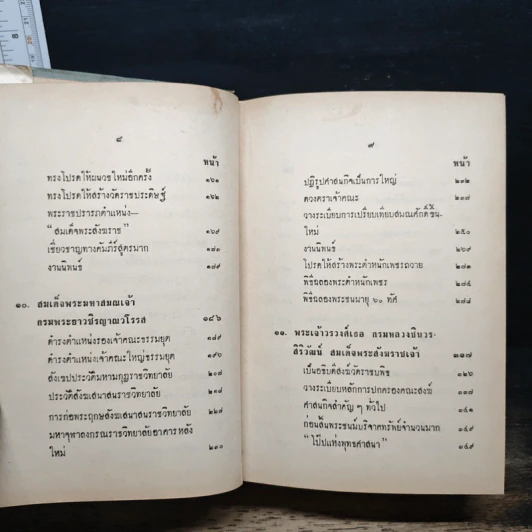 ๘
หน้า
ทรงโปรดให้ผนวชใหม่อีกครั้ง ๑๖๑
ทรงโปรดให้สร้างวัดราชประดิษฐ์ ๑๖๒
พระราชปรารภตำแหน่ง—
"สมเด็จพระสังฆราช" ๑๖๙
เชี่ยวชาญทางคัมภีร์สูตรมาก ๑๗๑
งานนิพนธ์ ๑๗๙
๑๐. สมเด็จพระมหาสมณเจ้า
กรมพระยาวชิรญาณวโรรส ๑๘๖
ดำรงตำแหน่งรองเจ้าคณะธรรมยุต
ดำรงตำแหน่งเจ้าคณะใหญ่ธรรมยุต ๑๙๖
สังเขปประวัติมหามกุฏราชวิทยาลัย
ประวัติสังฆเสนาสนราชวิทยาลัย
การก่อพระฤกษ์สังฆเสนาสนราชวิทยาลัย ๒๒๗
มหาจุฬาลงกรณราชวิทยาลัยอาคารหลัง
ใหม่ ๒๓๐
๙
หน้า
ปฏิรูปศาสนกิจเป็นการใหญ่ ๒๓๒
ดวงตราเจ้าคณะ ๒๓๗
วางระเบียบการเปรียบเทียบสมณศักดิ์ขึ้น
ใหม่ ๒๕๐
งานนิพนธ์ ๒๖๙
โปรดให้สร้างพระตำหนักเพชรถวาย ๒๗๑
พิธีฉลองพระตำหนักเพชร
พิธีฉลองพระชนมายุ ๖๐ ทัศ ๒๗๘
๑๑. พระเจ้าวรวงศ์เธอ กรมหลวงชินวร-
สิริวัฒน์ สมเด็จพระสังฆราชเจ้า ๓๑๗
เป็นอธิบดีสงฆ์วัดราชบพิธ ๓๒๖
วางระเบียบหลักการปกครองคณะสงฆ์
ศาสนกิจสำคัญ ๆ ทั่วไป ๓๔๑
ก่อนสิ้นพระชนม์บริจาคทรัพย์จำนวนมาก ๓๔๙
"โป๊ปแห่งพุทธศาสนา" ๓๔๙